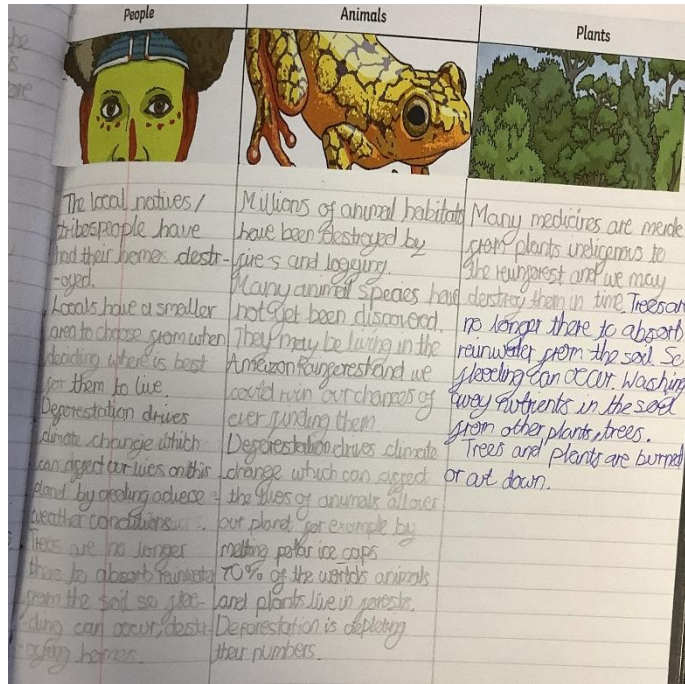 he
s
ore
People
The local natives/
tribespeople have
had their homes destr-
-oyed.
Locals have a smaller
area to choose from when
deciding where is best
for them to live.
Deforestation drives
climate change which
can affect our lives on this
planet by creating adverse
weather conditions.
Trees are no longer
there to absorb rainwater
from the soil so floo-
ding can occur, destr-
oying homes.
Animals
Millions of animal habitats
have been destroyed by
fire s and logging.
Many animal species have
not yet been discovered.
They may be living in the
Amazon Rainforest and we
could ruin our chances of
ever finding them.
Deforestation drives climate
change which can affect
the lives of animals all over
our planet for example by
melting polar ice caps
70% of the world's animals
and plants live in forests.
Deforestation is depleting
their numbers.
Plants
Many medicines are made
from plants indigenous to
the rainforest and we may
destroy them in time. Trees are
no longer there to absorb
rainwater from the soil. So
flooding can occur. Washing
away nutrients in the soil
from other plants, trees.
Trees and plants are burned
or cut down.